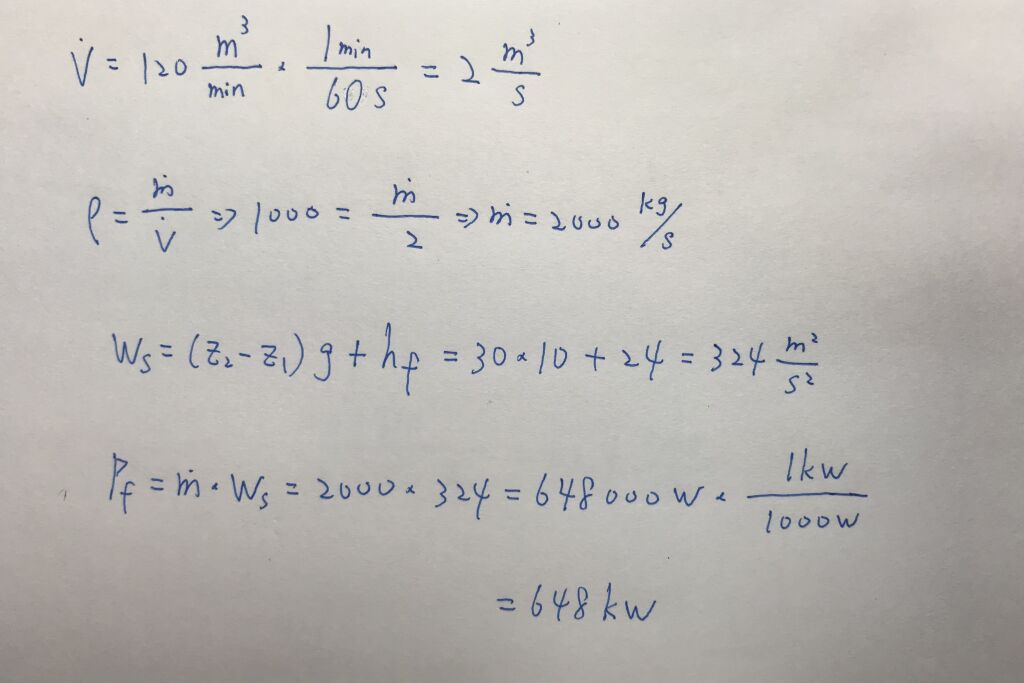 V̇ = 120 m³/min × 1min/60s = 2 m³/s
ρ = ṁ/V̇ => 1000 = ṁ/2 => ṁ = 2000 kg/s
Ws = (z₂-z₁) g + hf = 30 × 10 + 24 = 324 m²/s²
Pf = ṁ × Ws = 2000 × 324 = 648000 W × 1kw/1000w
= 648 kw